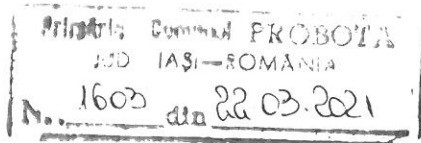 Primăria Comunei PROBOTA
JUD IAȘI—ROMÂNIA
N. 1603 din 22.03.2021